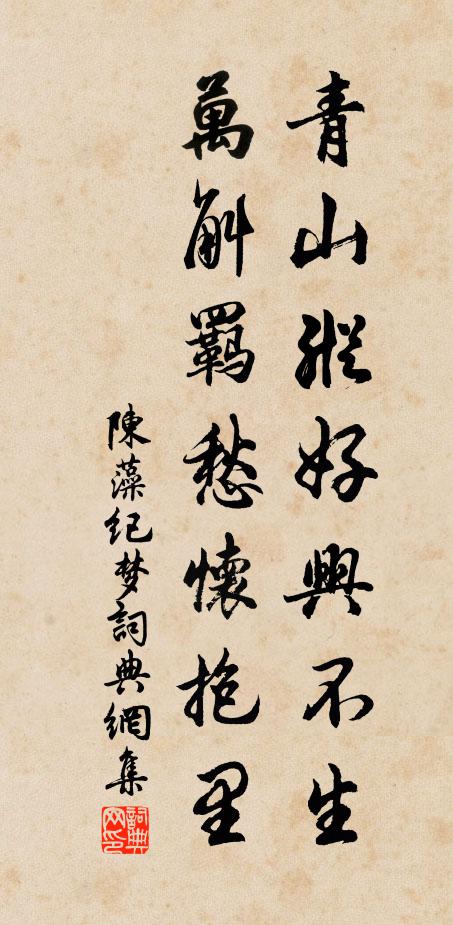 青山縱好興不生
萬斛羈愁懷抱里
陳藻纪梦詞典網集
詞典网印